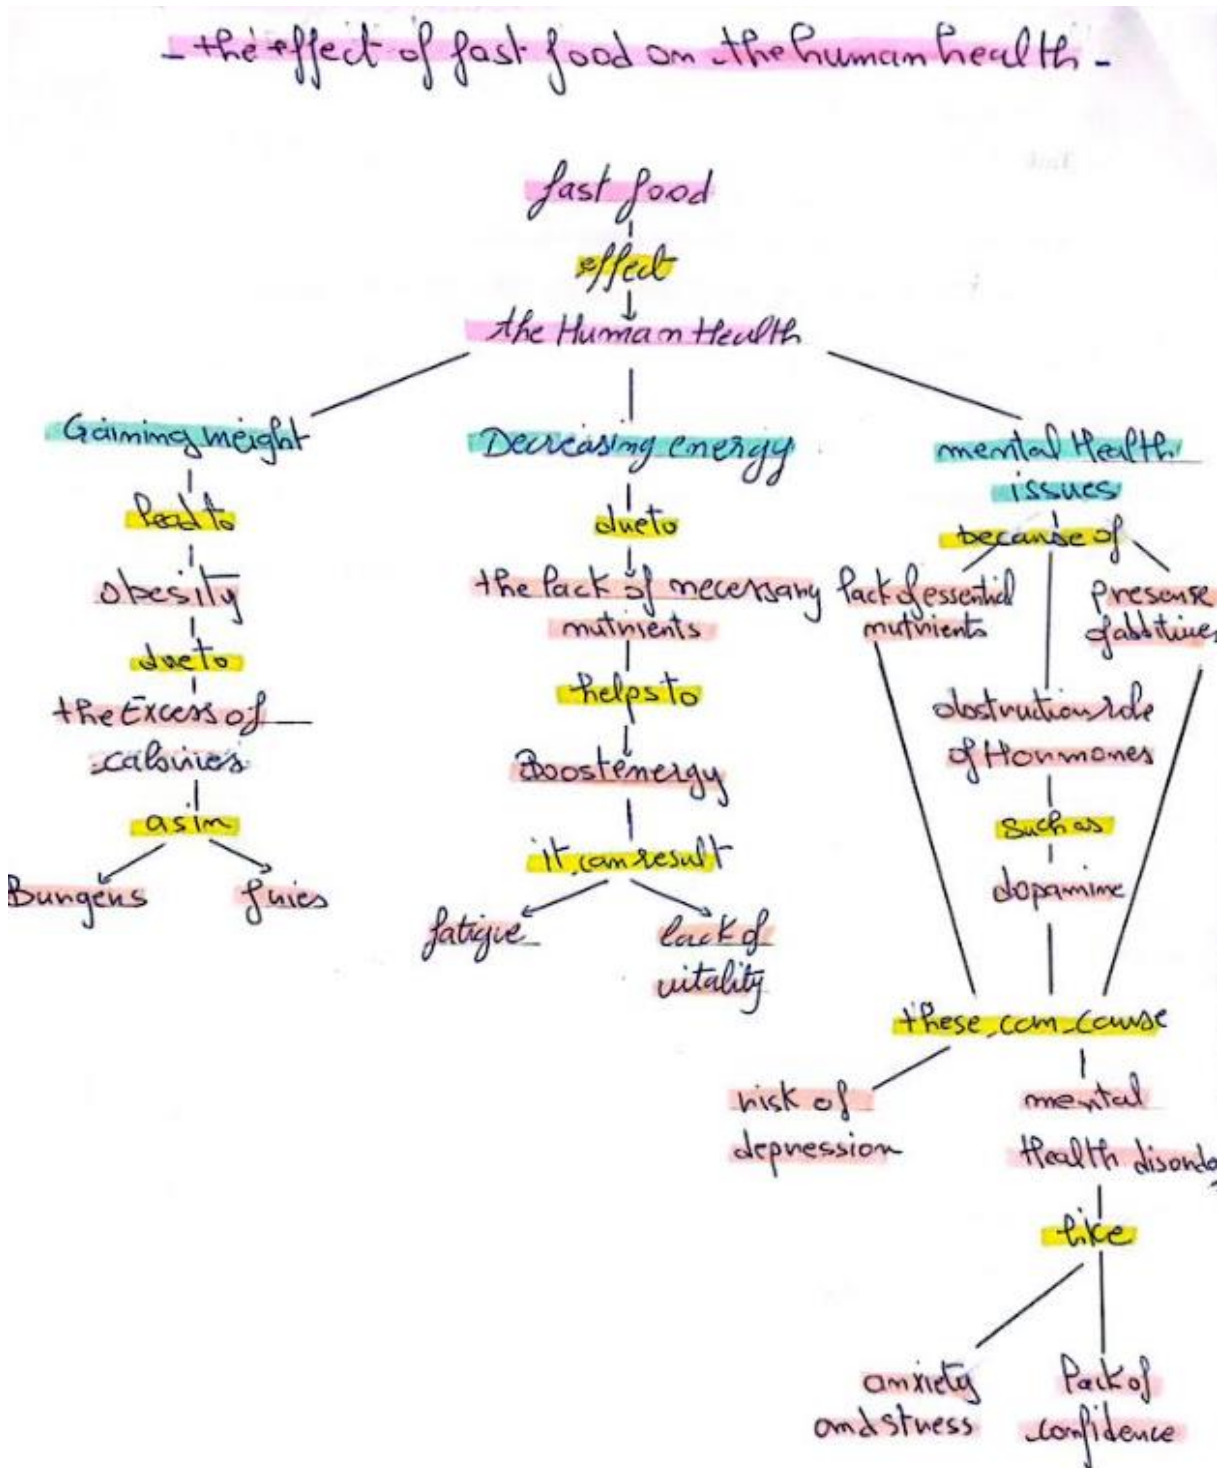 - the effect of fast food on the human health -
fast food
effect
the Human Health
Gaining weight
lead to
obesity
due to
the Excess of
calories
as in
Burgers
fries
Decreasing energy
due to
the lack of necessary
nutrients
helps to
Boost energy
it can result
fatigue
lack of
vitality
mental Health
issues
because of
lack of essential
nutrients
obstruction role
of Hormones
such as
dopamine
presense
of additives
these can cause
risk of
depression
mental
Health disorder
like
anxiety
and stress
lack of
confidence